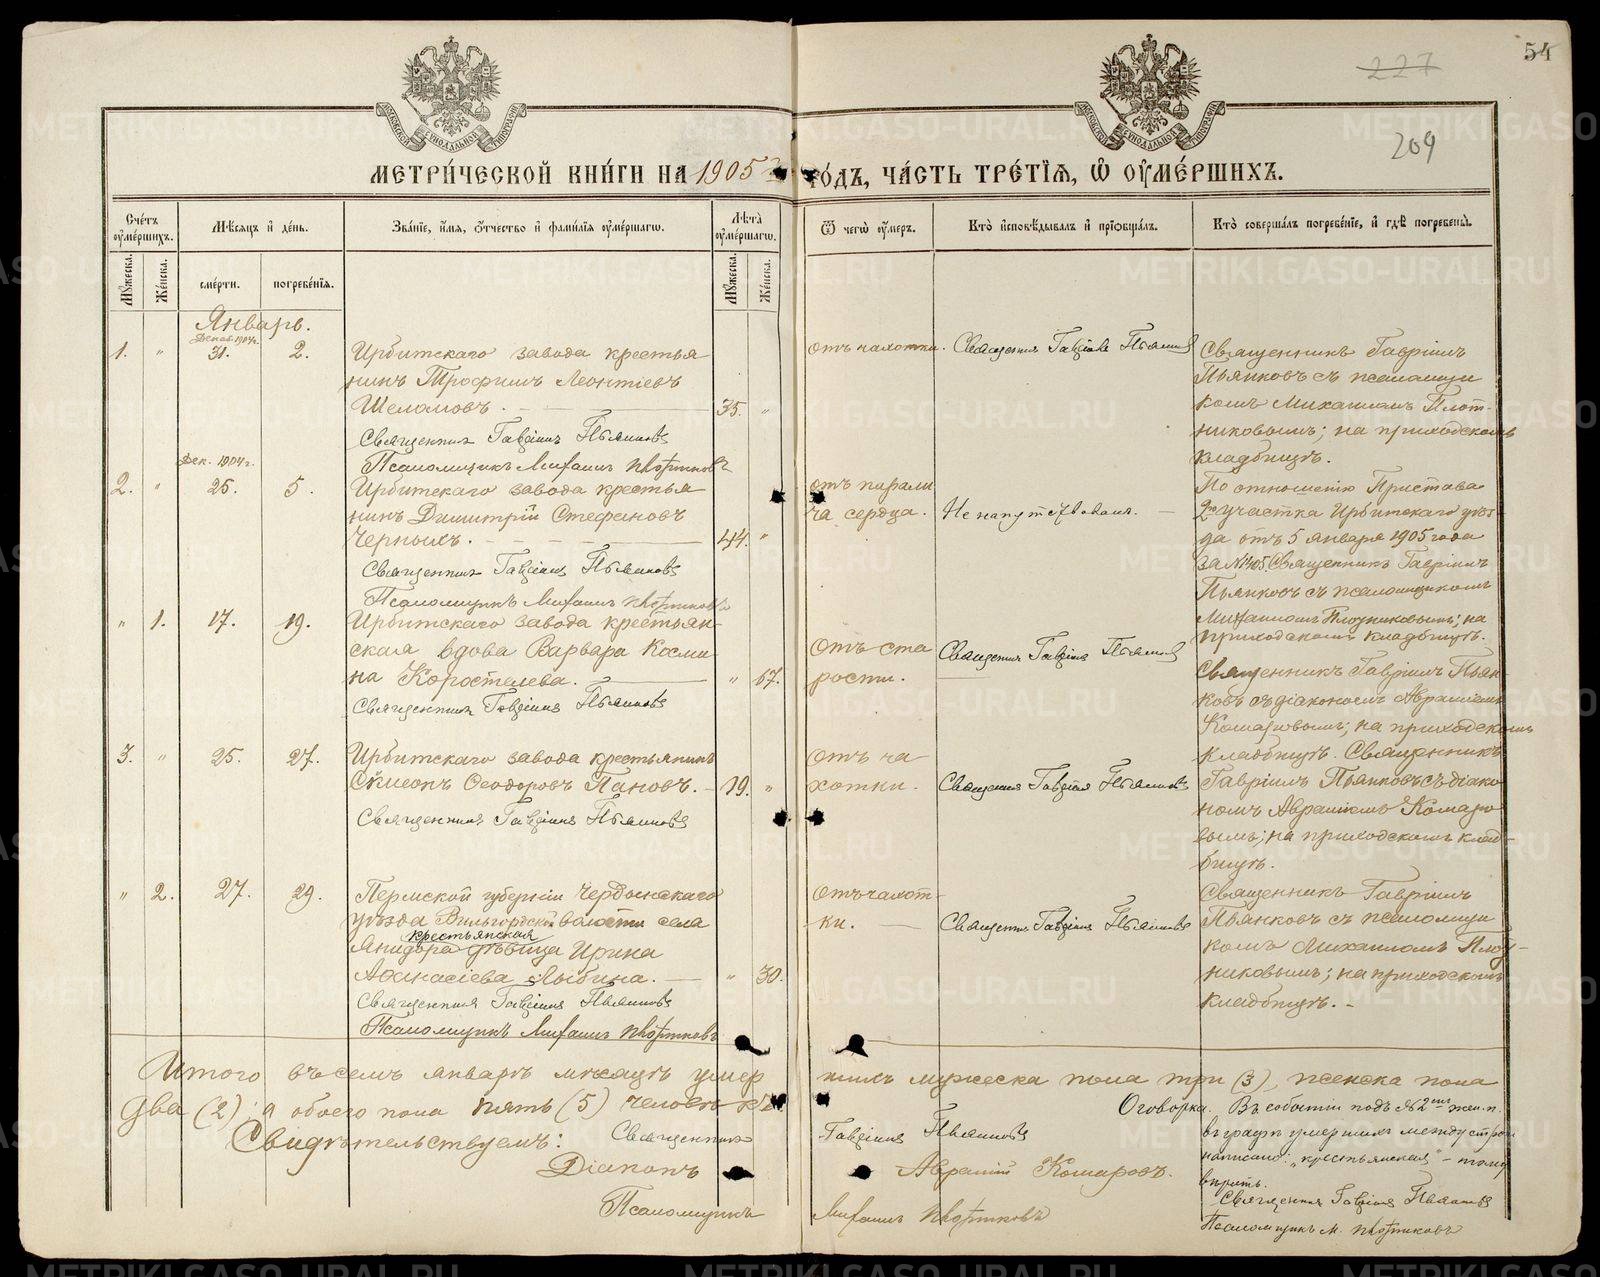 54
227
209
МЕТРИ́ЧЕСКОЙ КНИ́ГИ НА 1905 ГО́ДЪ, ЧА́СТЬ ТРЕ́ТІѦ, Ѡ҆ ОУ҆МЕ́РШИХЪ.
Сче́тъ оу҆ме́ршихъ.
Мѣ́сяцъ и҆ де́нь.
Зва́нїе, и҆́мя, ѻ҆́тчество и҆ фами́лїя оу҆ме́ршагѡ.
Лѣ́та оу҆ме́ршагѡ.
Ѿ чегѡ̀ оу҆́меръ.
Кто̀ и҆сповѣ́дывалъ и҆ прїѡбща́лъ.
Кто̀ соверша́лъ погребе́нїе, и҆ гдѣ̀ погребены̀.
Мꙋ́жеска.
Же́нска.
сме́рти.
погребе́нїя.
Мꙋ́жеска.
Же́нска.
Январь.
Декаб. 1904 г.
1. " 31. 2. Ирбитскаго завода крестья
никъ Трофимъ Леонтіевъ
Шеломовъ. 35. "
Священникъ Гавріилъ Пьянковъ
Псаломщикъ Михаилъ Плотниковъ
отъ чахотки. Священникъ Гавріилъ Пьянков
Священникъ Гавріилъ
Пьянковъ съ псаломщи
комъ Михаиломъ Плот-
никовымъ; на приходскомъ
кладбищѣ.
Дек. 1904 г.
2. " 25. 5. Ирбитскаго завода крестья
нинъ Димитрій Стефановъ
Черныхъ. 44. "
Священникъ Гавріилъ Пьянковъ
Псаломщикъ Михаилъ Плотниковъ
отъ парали
ча сердца. Не напутствованъ.
По отношенію Пристава
2го участка Ирбитскаго уѣз-
да отъ 5 января 1905 года
за № 405. Священникъ Гавріилъ
Пьянковъ съ псаломщикомъ
Михаиломъ Плотниковымъ; на
приходскомъ кладбищѣ.
" 1. 17. 19. Ирбитскаго завода крестьян-
ская вдова Варвара Косми
на Коростелева. " 67.
Священникъ Гавріилъ Пьянковъ
Отъ ста
рости. Священникъ Гавріилъ Пьянков
Священникъ Гавріилъ Пьян-
ковъ съ діакономъ Авраміемъ
Комаровымъ; на приходскомъ
кладбищѣ.
3. " 25. 27. Ирбитскаго завода крестьянинъ
Симеонъ Ѳеодоровъ Пановъ. 19. "
Священникъ Гавріилъ Пьянковъ
Отъ ча
хотки. Священникъ Гавріилъ Пьянковъ
Священникъ
Гавріилъ Пьянковъ съ діако
номъ Авраміемъ Комаро
вымъ; на приходскомъ клад-
бищѣ.
" 2. 27. 29. Пермской губерніи Чердынскаго
уѣзда Вильгортской волости села
крестьянская
Анидора дѣвица Ирина
Аѳанасіева Лыбина. " 30.
Священникъ Гавріилъ Пьянковъ
Псаломщикъ Михаилъ Плотниковъ
Отъ чахот-
ки. Священникъ Гавріилъ Пьянковъ
Священникъ Гавріилъ
Пьянковъ съ псаломщи
комъ Михаиломъ Плот-
никовымъ; на приходскомъ
кладбищѣ.
Итого въ семъ январѣ мѣсяцѣ умер шихъ мужеска пола три (3), женска пола
два (2), а обоего пола пять (5) человѣкъ.
Свидѣтельствуемъ: Священникъ Гавріилъ Пьянковъ
Діаконъ Аврамій Комаровъ.
Псаломщикъ Михаилъ Плотниковъ
Оговорка. Въ событіи подъ № 2мъ жен. п.
въ графѣ умершихъ между строк
написано: „крестьянская" – тому
вѣрить.
Священникъ Гавріилъ Пьянковъ
Псаломщикъ М. Плотниковъ
METRIKI.GASO-URAL.RU